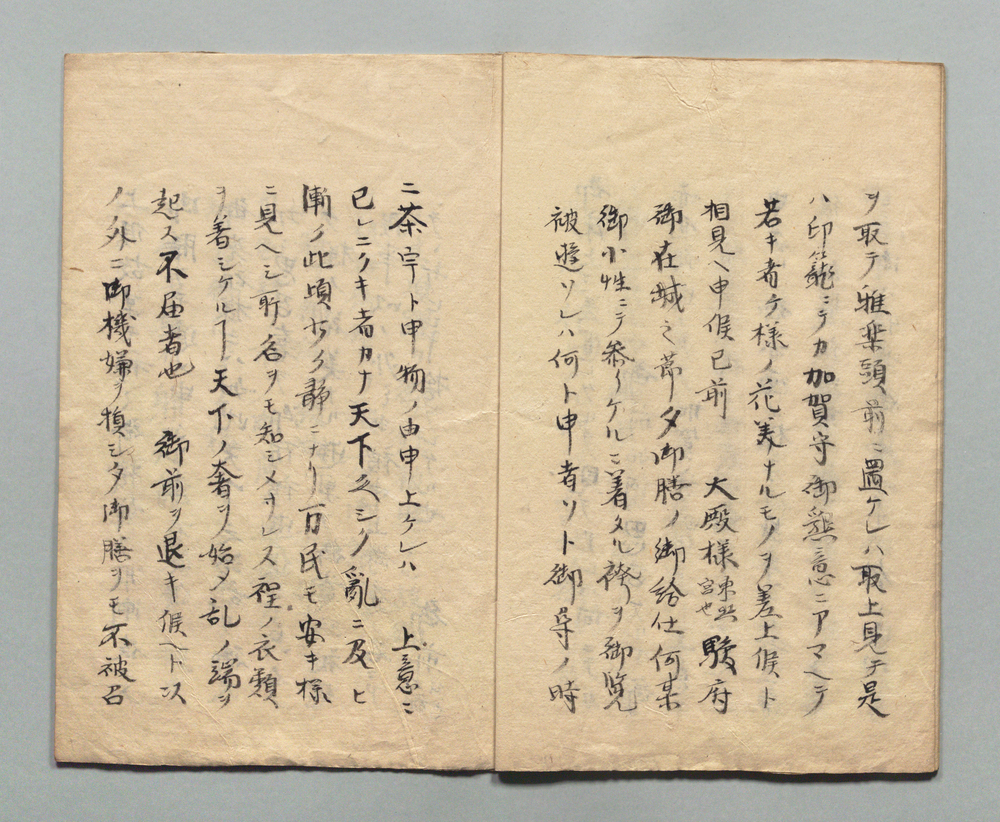 ヲ取テ雅楽頭前ニ置ケレハ取上見テ是
ハ印籠ニテカ加賀守御懇意ニアマヘテ
若キ者ケ様ノ花美ナルモノヲ差上候ト
相見ヘ申候已前 大殿様東照宮也駿府
御在城之節夕御膳ノ御給仕何某
御小性ニテ参リケルニ着タル袴ヲ御覧
被遊ソレハ何ト申者ソト御尋ノ時
ニ茶宇ト申物ノ由申上ケレハ 上意ニ
已レニクキ者カナ天下久シク乱ニ及ヒ
漸ク此頃少ク静ニナリ万民モ安キ様
ニ見ヘシ所名ヲモ知シメサレス程ノ衣類
ヲ着シケルヿ天下ノ奢ヲ始メ乱ノ端ヲ
起ス不届者也 御前ヲ退キ候ヘト以
ノ外ニ御機嫌ヲ損シ夕御膳ヲモ不被召